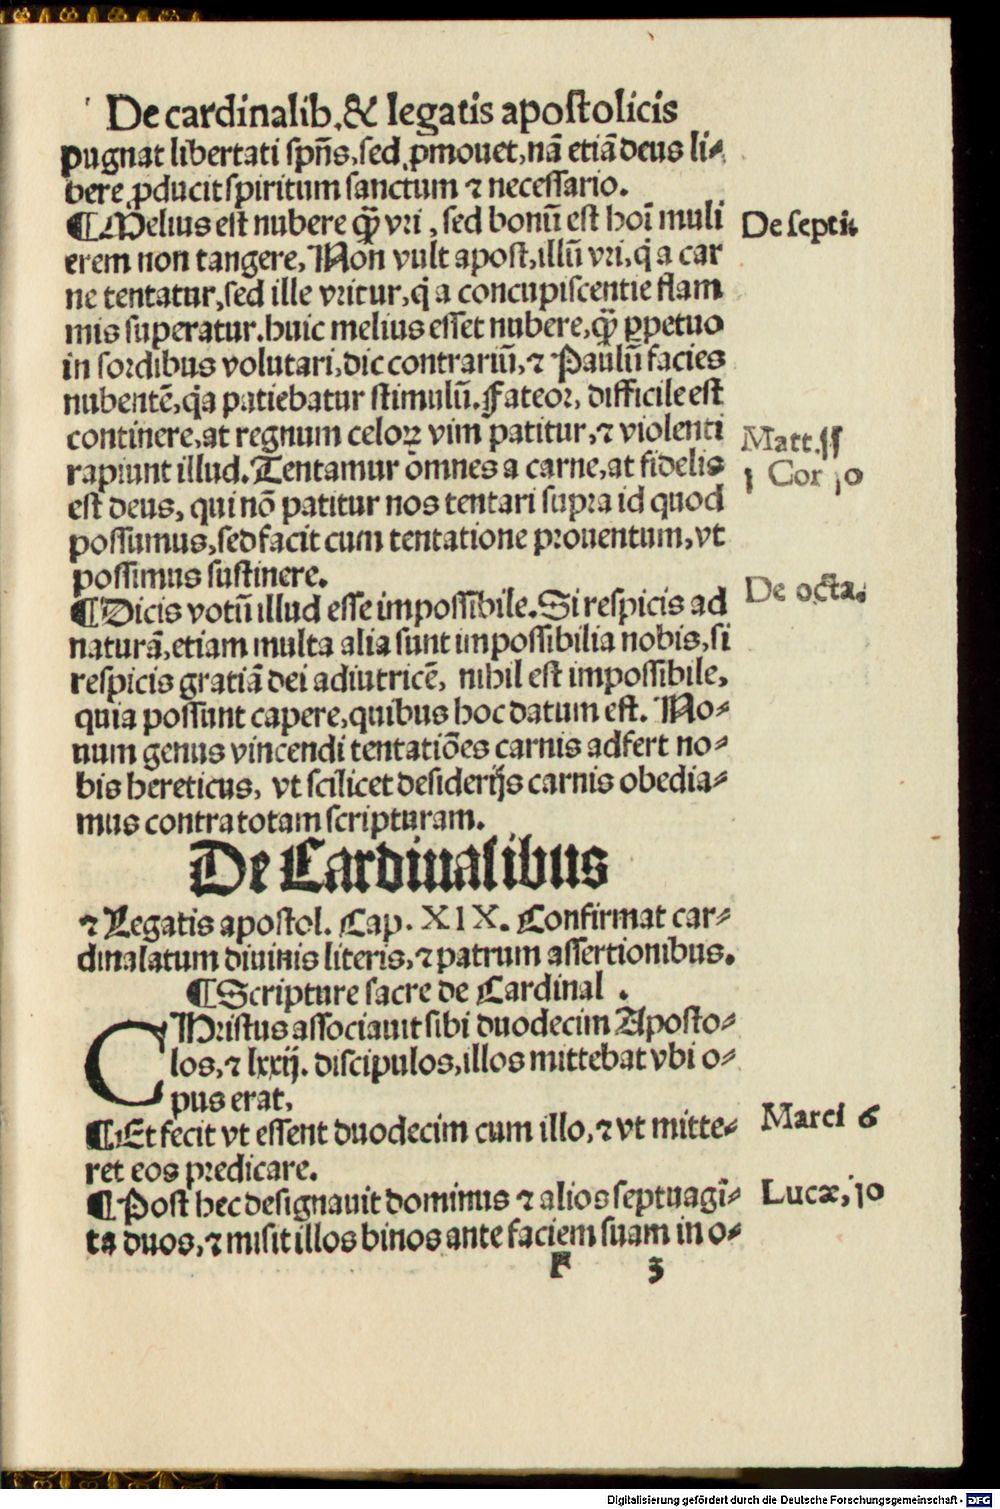 De cardinalib. & legatis apostolicis
pugnat libertati spũs, sed ꝓmouet, nã etiã deus li⸗
bere ꝓducit spiritum sanctum ⁊ necessario.
¶ Melius est nubere q̃ꝫ vri, sed bonũ est hoĩ muli
De septi.
erem non tangere, Non vult apost, illũ vri, q̇ a car
ne tentatur, sed ille vritur, q̇ a concupiscentie flam
mis superatur. huic melius esset nubere, q̃ꝫ ꝑpetuo
in sordibus volutari, dic contrariũ, ⁊ Paulũ facies
nubentẽ, q̇a patiebatur stimulũ. Fateor, difficile est
continere, at regnum celoꝝ vim patitur, ⁊ violenti
Matt. 11
rapiunt illud. Tentamur õmnes a carne, at fidelis
1 Cor 10
est deus, qui nõ patitur nos tentari supra id quod
possumus, sed facit cum tentatione prouentum, vt
possimus sustinere.
De octa.
¶ Dicis votũ illud esse impossibile. Si respicis ad
naturã, etiam multa alia sunt impossibilia nobis, si
respicis gratiã dei adiutricẽ, nihil est impossibile,
quia possunt capere, quibus hoc datum est. No⸗
num genus vincendi tentatiões carnis adfert no⸗
bis hereticus, vt scilicet desiderijs carnis obedia⸗
mus contra totam scripturam.
De Cardinalibus
⁊ Legatis apostol. Cap. XIX. Confirmat car⸗
dinalatum diuinis literis, ⁊ patrum assertionibus.
¶ Scripture sacre de Cardinal.
CHristus associauit sibi duodecim Aposto⸗
los, ⁊ lxxij. discipulos, illos mittebat vbi o⸗
pus erat,
¶ Et fecit vt essent duodecim cum illo, ⁊ vt mitte⸗
Marci 6
ret eos predicare.
¶ Post hec designauit dominus ⁊ alios septuagĩ⸗
Lucæ, 10
ta duos, ⁊ misit illos binos ante faciem suam in o⸗
F 3
Digitalisierung gefördert durch die Deutsche Forschungsgemeinschaft - DFG